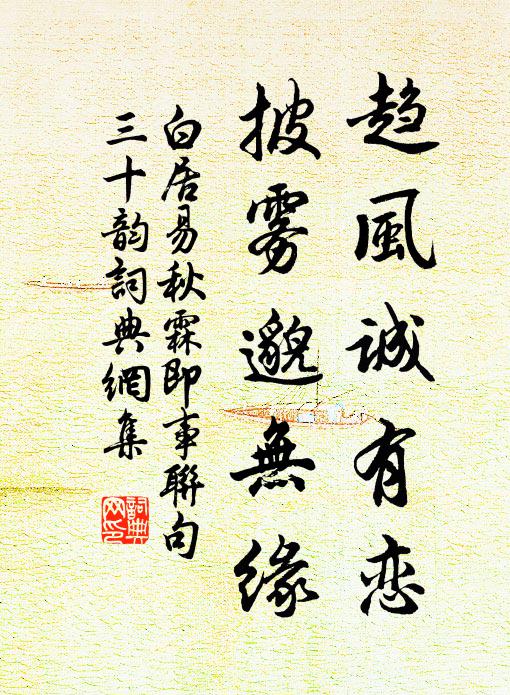 趋風诚有恋
披雾邈無缘
白居易秋霖即事聯句
三十韵詞典網集
詞典
网印